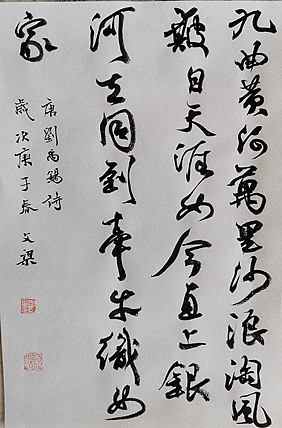 九曲黄河萬里沙浪淘風
簸自天涯如今直上銀
河去同到牽牛織女
家
唐劉禹錫詩
歲次庚子春文梁